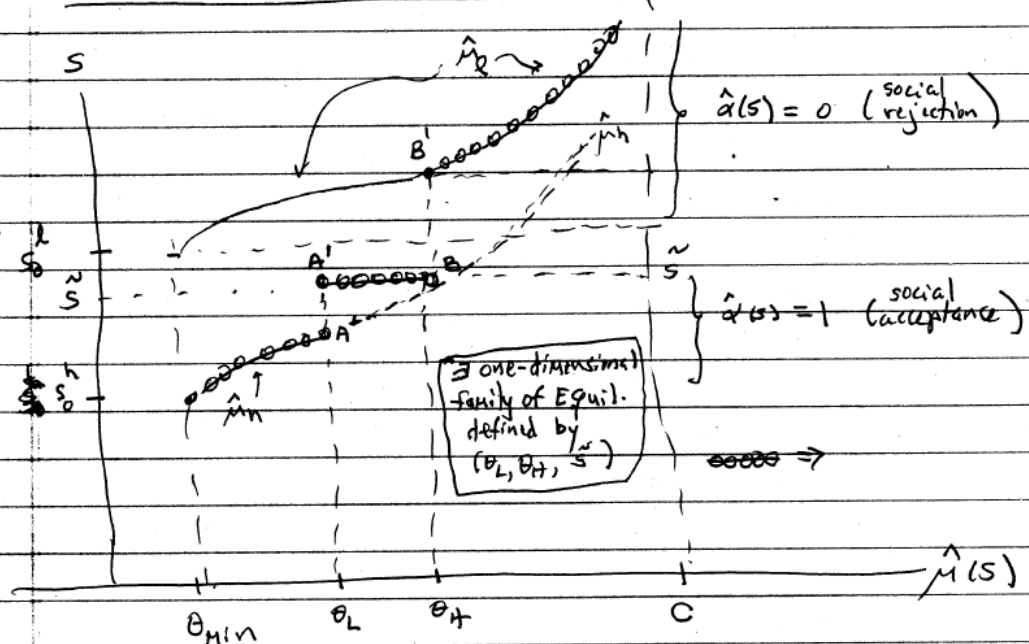 S
μ̂_ℓ
α̂(s) = 0 (social rejection)
μ̂_h
B'
s_0^l
A'
B
s̃
s̃
α̂(s) = 1 (social acceptance)
A
s_0^h
μ̂_h
∃ one-dimensimal
family of Equil.
defined by
(θ_L, θ_H, s̃)
⇒
μ̂(s)
θ_min
θ_L
θ_H
C